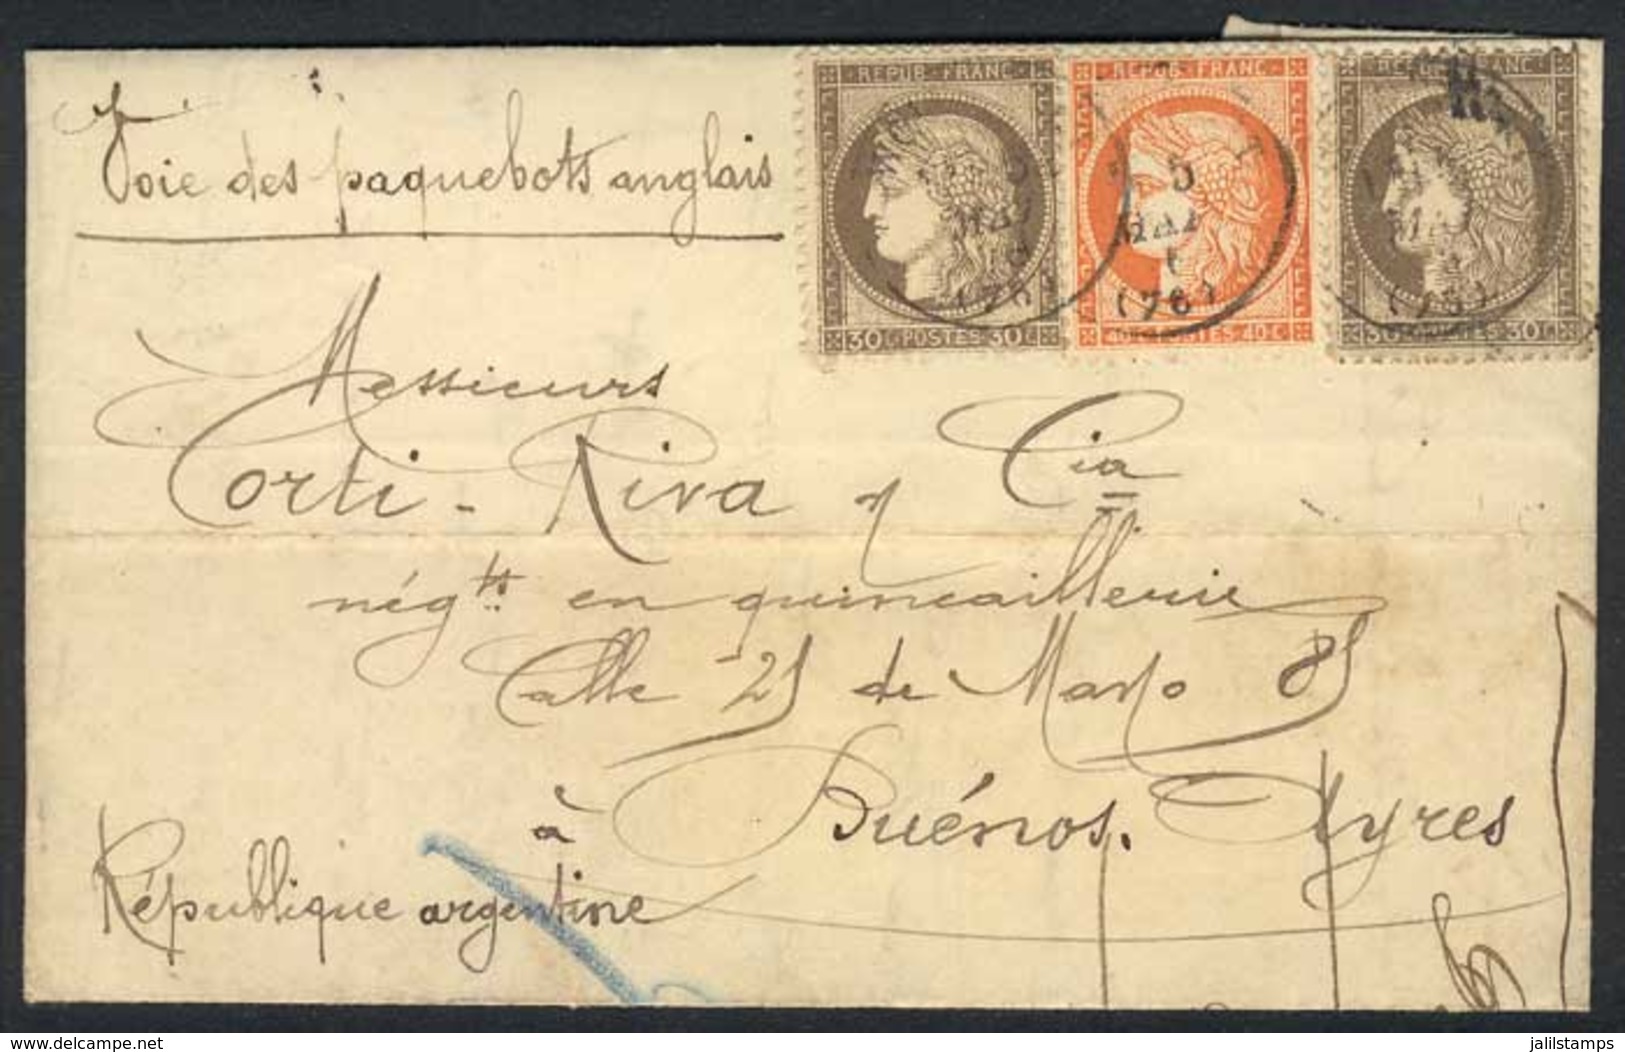 REPUB · FRANC ·
30 C · POSTES · 30 C
REPUB · FRANC ·
40 C POSTES · 40 C
REPUB FRANC
30 C 30 C
5
MAI
(76)
Voie des paquebots anglais
Messieurs
Corti - Riva y Cia
négts en quincaillerie
Calle 25 de Mayo 85
à Buénos. Ayres
République argentine
www.delcampe.net
jalilstamps